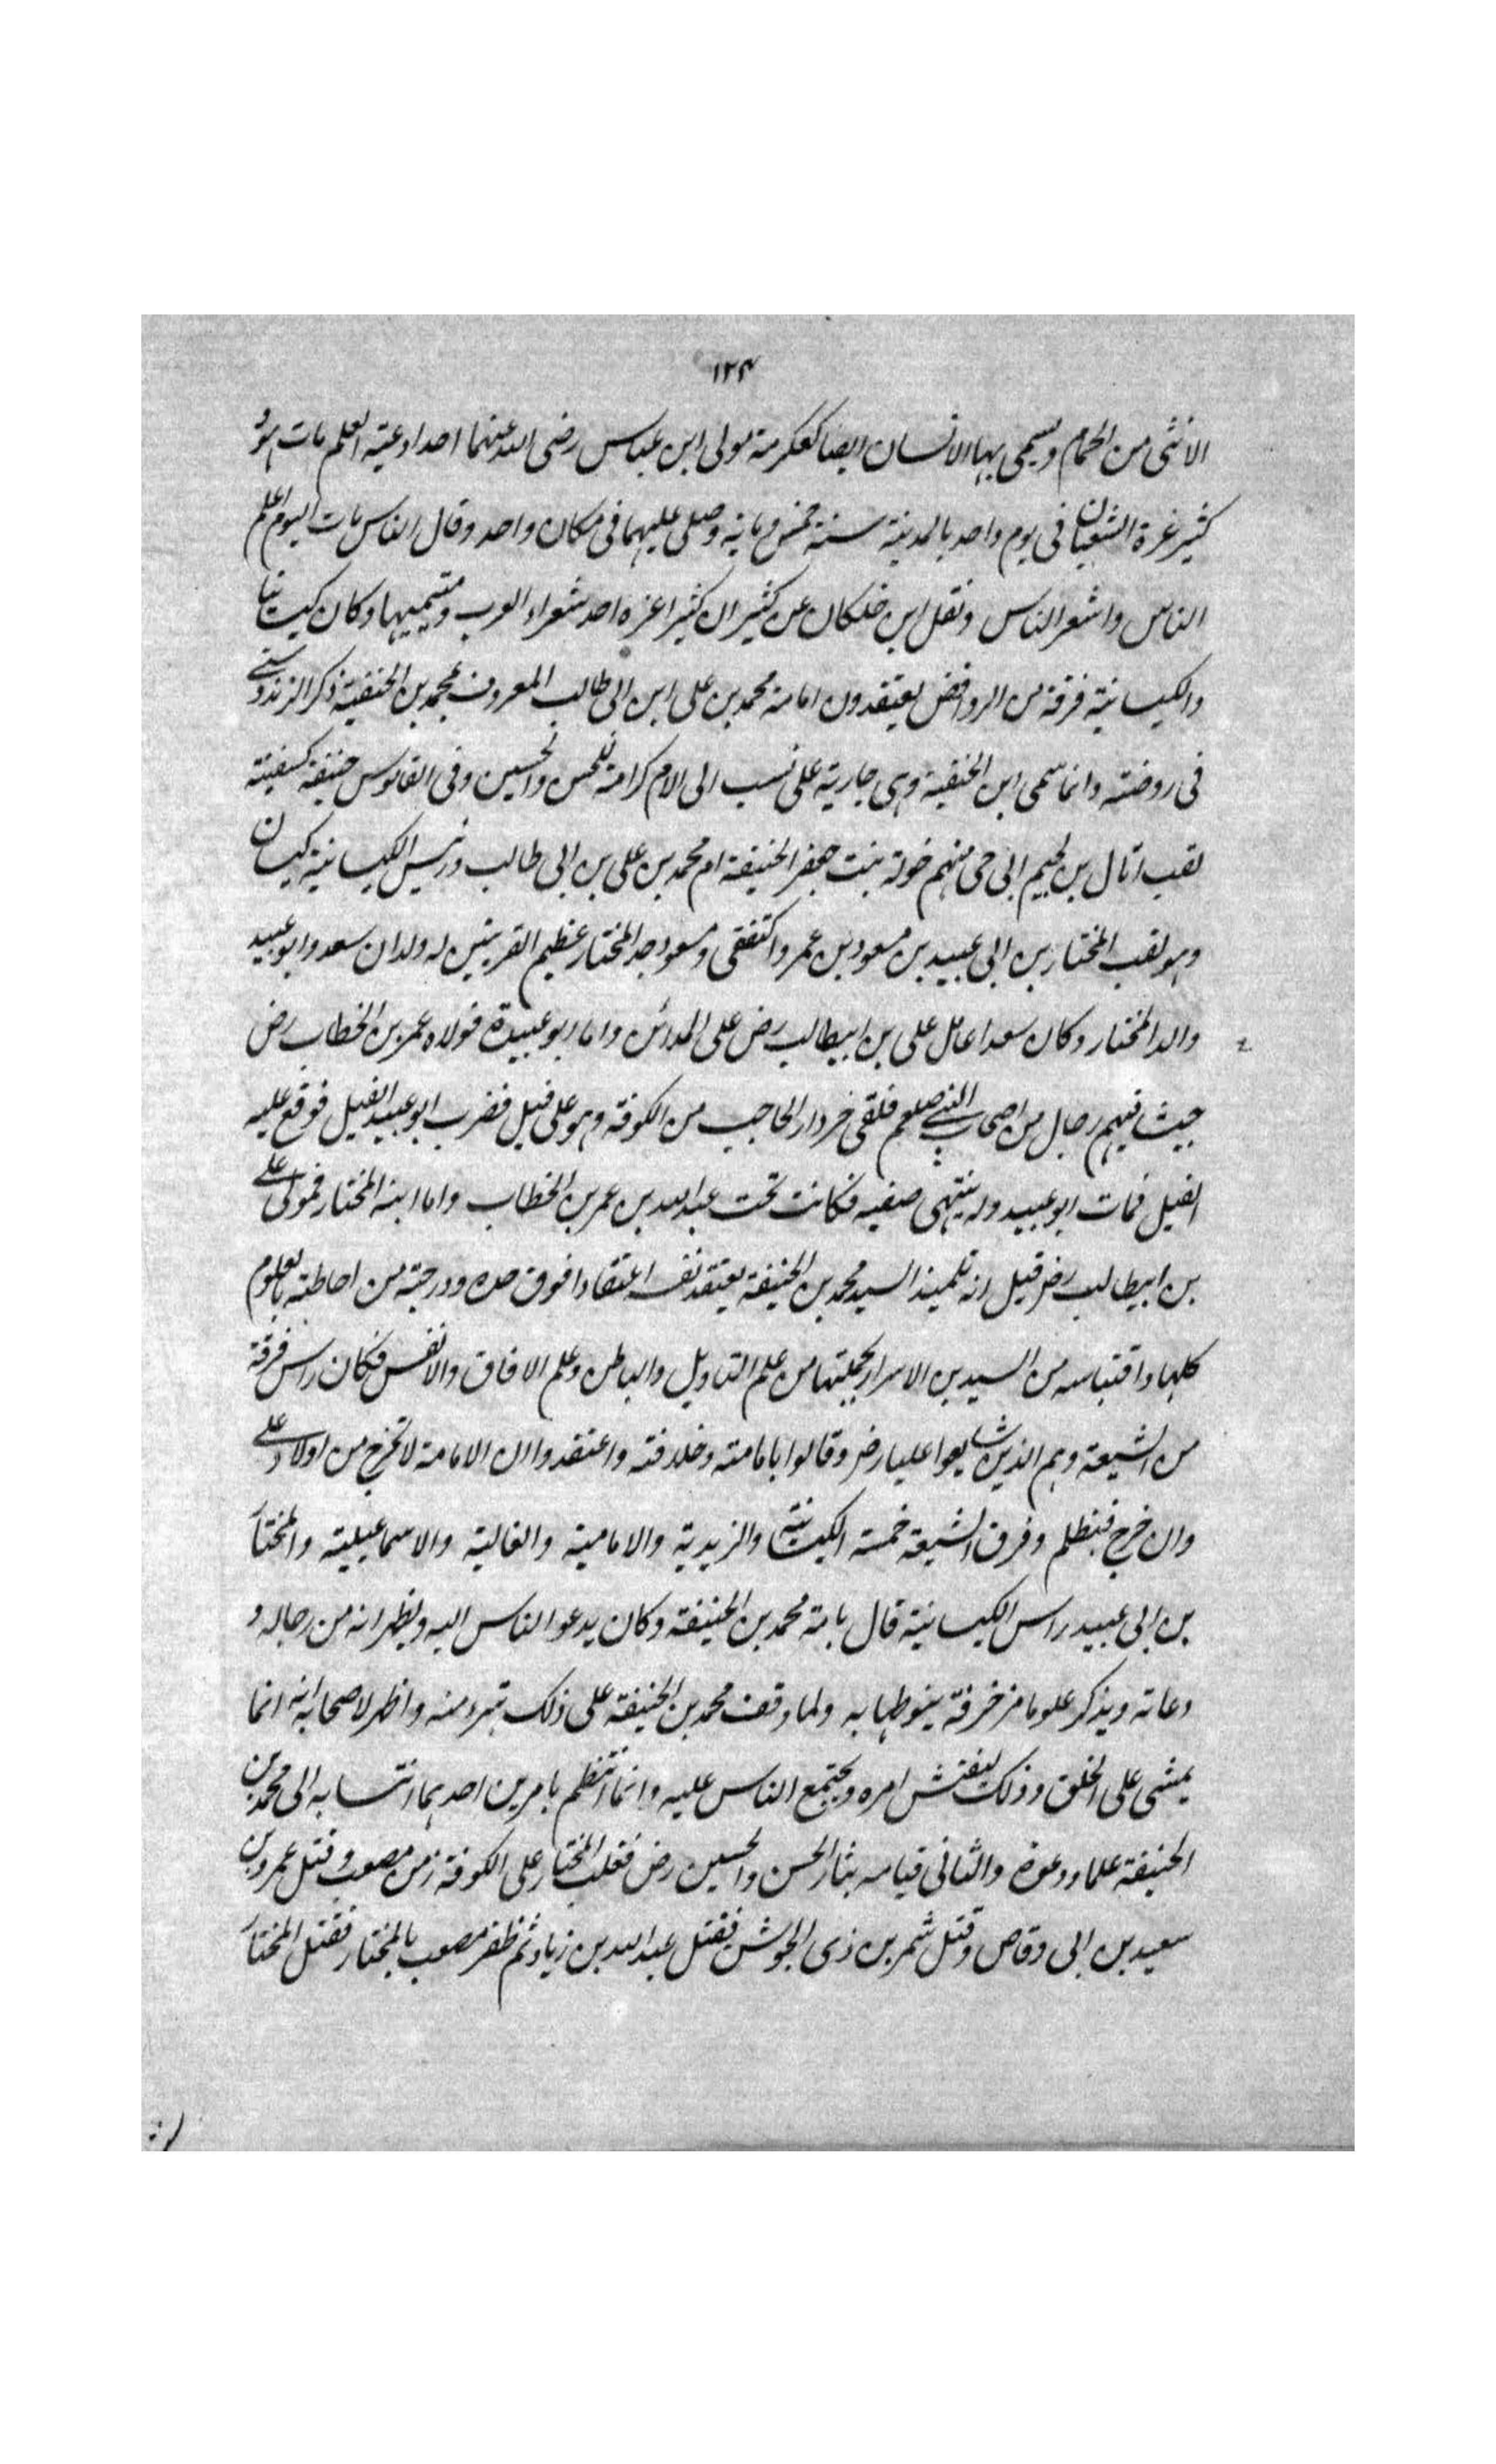 ١٢٤
الانثى من الحمام ويسمى بها الانسان ايضا كعكرمة مولى ابن عباس رضى الله عنهما احد اوعية العلم مات هو و
كثير عزة الشعبان فى يوم واحد بالمدينة سنة خمس ومائة وصلى عليهما فى مكان واحد وقال الناس مات اليوم اعلم
الناس واشعر الناس ونقل ابن خلكان عن كثير ان كثيرا عزه احد شعراء العرب ومتيميها وكان كيسانيا
والكيسانية فرقة من الروافض يعتقدون امامة محمد بن على ابن ابى طالب المعروف بمحمد بن الحنفية ذكر الزندوستى
فى روضته وانما سمى ابن الحنفية وهى جارية على نسب الى الام كرامة للحسن والحسين وفى القاموس حنيفة كسفينة
لقب اثال بن لجيم ابى حى منهم خولة بنت جعفر الحنيفة ام محمد بن على بن ابى طالب ورئيس الكيسانية كيسان
وهو لقب المختار بن ابى عبيد بن مسعود بن عمرو الثقفى ومسعود جد المختار عظيم القريتين له ولدان سعد وابو عبيد
والد المختار وكان سعدا عامل على بن ابيطالب رض على المدائن واما ابو عبيدة فولاه عمر بن الخطاب رض
جيشا فيهم رجال من اصحاب النبى صلعم فلقى خردار الحاجب من الكوفة وهو على فيل فضرب ابو عبيد الفيل فوقع عليه
الفيل فمات ابو عبيد وله بنتهى صفيه فكانت تحت عبد الله بن عمر بن الخطاب واما ابنه المختار فمولى على
بن ابيطالب رض قيل انه تلميذ السيد محمد بن الحنيفة يعتقد نفسه اعتقادا فوق حده ودرجته من احاطته بالعلوم
كلها واقتباسه من السيد بن الاسرار بجملتها من علم التاويل والباطن وعلم الافاق والانفس فكان راس فرقة
من الشيعة وهم الذين شايعوا عليا رض وقالوا بامامته وخلافته واعتقدوا ان الامامة لا تخرج من اولاد على
وان خرج فبظلم وفرق الشيعة خمسة الكيسانية والزيدية والامامية والغالية والاسماعيلية والمختار
بن ابى عبيد راس الكيسانية قال بامة محمد بن الحنيفة وكان يدعو الناس اليه ويظهر انه من رجاله و
دعاته ويذكر علوما مزخرفة ينوطها به ولما وقف محمد بن الحنيفة على ذلك تبرء منه واظهر لاصحابه انه انما
يمشى على الخلق وذلك ليفتش امره ويجتمع الناس عليه وانما انتظم بامرين احدهما انتسابه الى محمد بن
الحنيفة علما ودعوة والثانى قيامه بثار الحسن والحسين رض فغلب المختار على الكوفة زمن مصعب وقتل عمرو بن
سعيد بن ابى وقاص وقتل شمر بن ذى الجوشن فقتل عبد الله بن زياد ثم ظفر مصعب بالمختار فقتل المختار